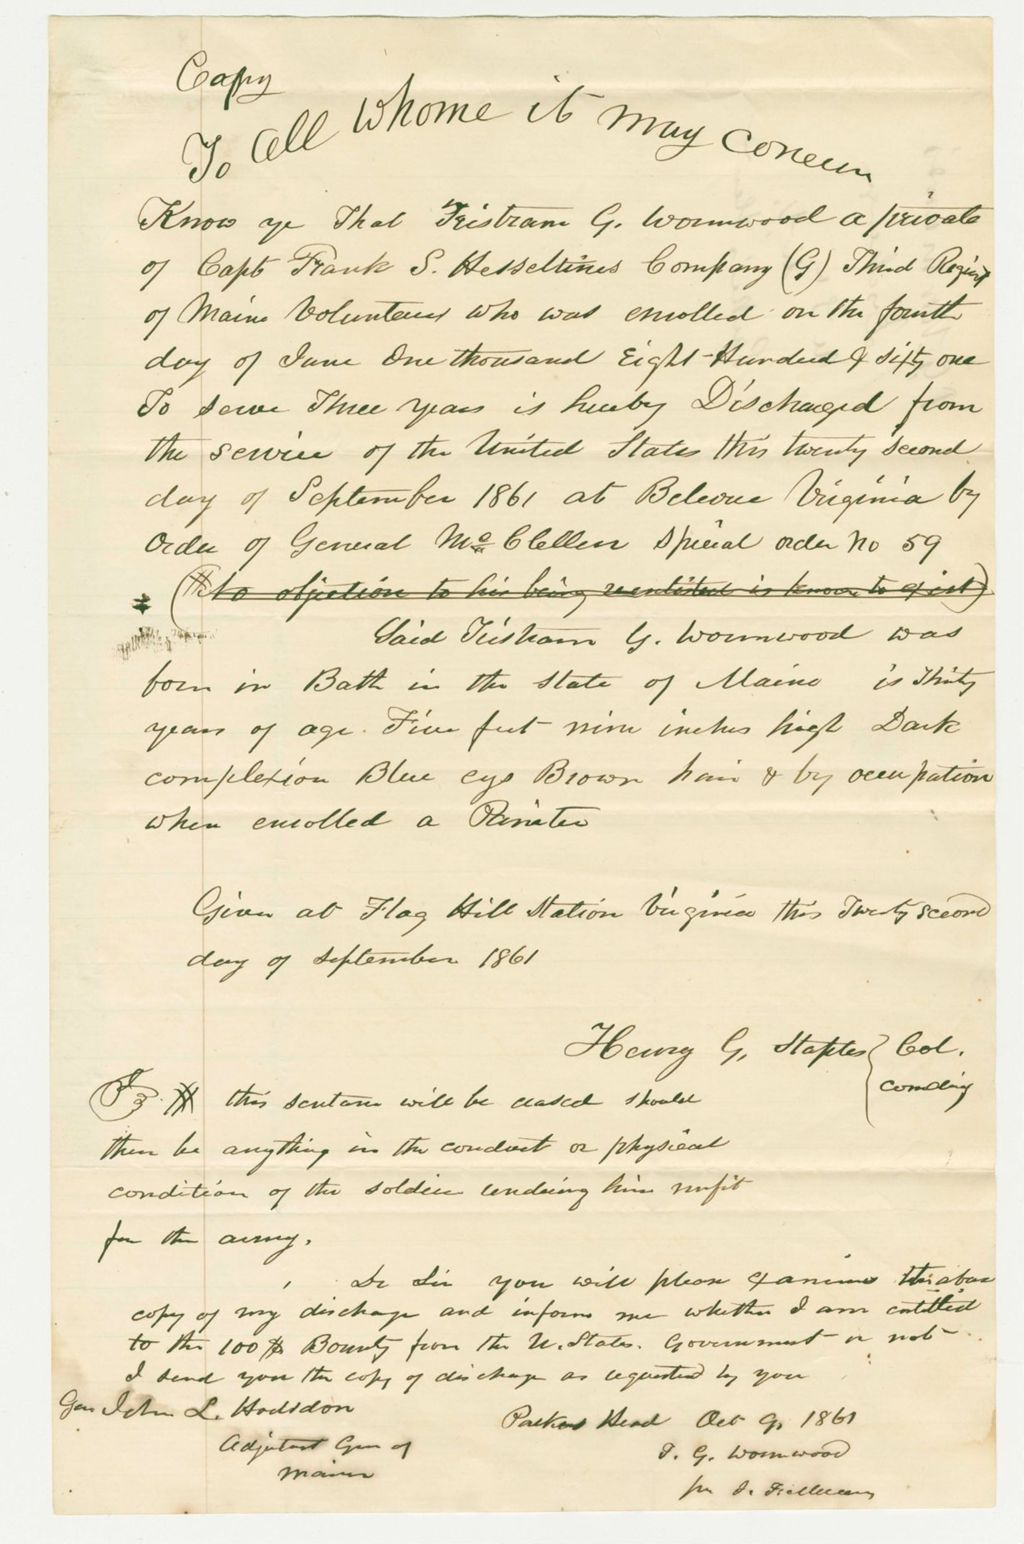 Copy
To all whome it may concern
Know ye That Tristram G. Wormwood a private
of Capt Frank S. Hesseltines Company (G) Third Regimt
of Maine Volunteers who was enrolled on the fourth
day of June One thousand Eight-Hundred & sixty one
To serve Three years is hereby Discharged from
the service of the United States this twenty second
day of September 1861 at Belevue Virginia by
Order of General Mc Clellen Special order No 59
(No objection to his being reenlisted is known to exist)
Said Tristram G. Wormwood was
born in Bath in the State of Maine is Thirty
years of age. Five feet nine inches high Dark
complexion Blue eys Brown hair & by occupation
when enrolled a Painter
Given at Flag Hill Station Virginia this Twenty second
day of September 1861
Henry G. Staples } Col.
comding
this sentance will be erased should
there be anything in the conduct or physical
condition of the soldier rendering him unfit
for the army.
Dr Sir you will please examine this above
copy of my discharge and inform me whether I am entitled
to the 100 $ Bounty from the U. States. Government or not-
I send you the copy of discharge as requested by you
Gen John L. Hodsdon
Parkers Head Oct 9, 1861
Adjutant Gen of
T. G. Wormwood
Maine